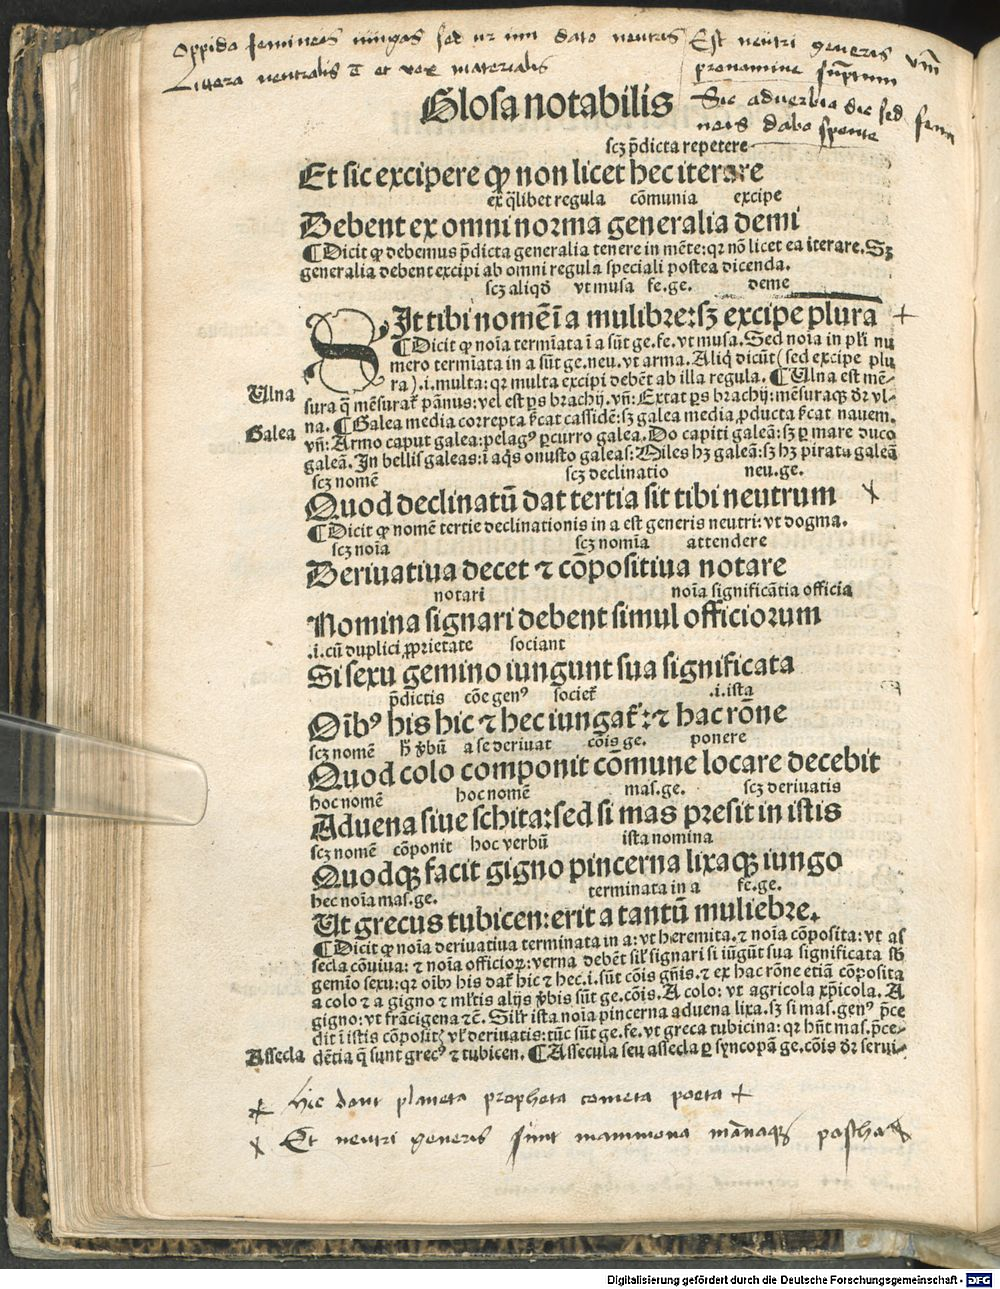 Oppida femineis iungas sed ur um dato neutris
Littera neutralis est et vox materialis
Est neutri generis
pronomine sumptum
Sic adverbia sic sed
dabo sponte
Glosa notabilis
scz p̄dicta repetere
Et sic excipere ꝙ non licet hec iterare
ex q̄libet regula cōmunia excipe
Debent ex omni norma generalia demi
¶Dicit ꝙ debemus p̄dicta generalia tenere in mēte: qr nō licet ea iterare. Sꝫ
generalia debent excipi ab omni regula speciali postea dicenda.
scꝫ aliqd̄ vt musa fe.ge. deme
SIt tibi nomē ī a mulibre: sꝫ excipe plura
¶Dicit ꝙ noīa termīata ī a sūt ge.fe. vt musa. Sed noīa in pl̄i nu
mero termīata in a sūt ge.neu. vt arma. Aliq̄ dicūt (sed excipe plu
ra).i.multa: qr multa excipi debēt ab illa regula. ¶Ulna est mē-
Ulna
sura q̄ mēsurat̄ pānus: vel est ꝑs brachij. vn̄: Extat ꝑs brachij: mēsuraqꝫ dr̄ vl-
na. ¶Galea media correpta f̄cat cassidē: sꝫ galea media ꝓducta f̄cat nauem.
Galea
vn̄: Armo caput galea: pelagꝰ ꝑcurro galea. Do capiti galeā: sꝫ ꝑ mare duco
galeā. In bellis galeas: ī aq̄s onusto galeas: Miles hꝫ galeā: sꝫ hꝫ pirata galeā
scꝫ nomē scꝫ declinatio neu.ge.
Quod declinatū dat tertia sit tibi neutrum
¶Dicit ꝙ nomē tertie declinationis in a est generis neutri: vt dogma.
scꝫ noīa scꝫ nomīa attendere
Deriuatiua decet ⁊ cōpositiua notare
notari noīa significātia officia
Nomina signari debent simul officiorum
.i.cū duplici ꝓprietate sociant
Si sexu gemino iungunt sua significata
p̄dictis cōe genꝰ societ̄ .i.ista
Oībꝰ his hic ⁊ hec iungat̄: ⁊ hac rōne
scꝫ nomē h̄ v̄bū a se deriuat cōis ge. ponere
Quod colo componit cōmune locare decebit
hoc nomē hoc nomē mas.ge. scꝫ deriuatis
Aduena siue schita: sed si mas presit in istis
scꝫ nomē cōponit hoc verbū ista nomina
Quodqꝫ facit gigno pincerna lixaqꝫ iungo
hec noīa mas.ge. terminata in a fe.ge.
Ut grecus tubicen: erit a tantū muliebre.
¶Dicit ꝙ noīa deriuatiua terminata in a: vt heremita. ⁊ noīa cōposita: vt as
secla cōuiua: ⁊ noīa officioꝝ: verna debēt sil̄ signari si iūgūt sua significata sb̄
gemio sexu: qr oībꝰ his dat̄ hic ⁊ hec .i. sūt cōis gn̄is. ⁊ ex hac rōne etiā cōposita
a colo ⁊ a gigno ⁊ ml̄tis alijs v̄bis sūt ge.cōis. A colo: vt agricola xp̄icola. A
gigno: vt frācigena ⁊c̄. Sil̄r ista noīa pincerna aduena lixa. sꝫ si mas.genꝰ p̄ce
dit ī istis cōposit̄ vl̄ deriuatis: tūc sūt ge.fe. vt greca tubicina: qr hn̄t mas.p̄ce-
dētia q̄ sunt grecꝰ ⁊ tubicen. ¶Assecula seu assecla ꝑ syncopā ge.cōis dr̄ serui-
Assecla
+ Hic dant planeta propheta cometa poeta +
Et neutri generis sunt mammona mannaqꝫ pascha
Digitalisierung gefördert durch die Deutsche Forschungsgemeinschaft - DFG